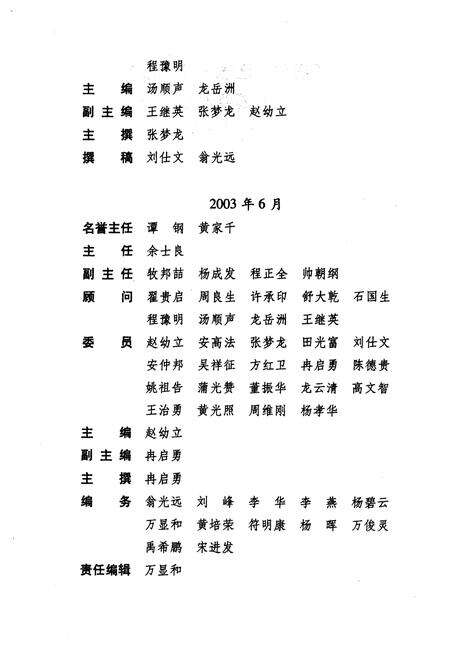 程豫明
主编 汤顺声 龙岳洲
副主编 王继英 张梦龙 赵幼立
主撰 张梦龙
撰稿 刘仕文 翁光远
2003年6月
名誉主任 谭钢 黄家千
主任 余士良
副主任 牧邦喆 杨成发 程正全 帅朝纲
顾问 翟贵启 周良生 许承印 舒大乾 石国生
程豫明 汤顺声 龙岳洲 王继英
委员 赵幼立 安高法 张梦龙 田光富 刘仕文
安仲邦 吴祥征 方红卫 冉启勇 陈德贵
姚祖告 蒲光赞 董振华 龙云清 高文智
王治勇 黄光照 周维刚 杨孝华
主编 赵幼立
副主编 冉启勇
主撰 冉启勇
编务 翁光远 刘峰 李华 李燕 杨碧云
万显和 黄培荣 符明康 杨晖 万俊灵
禹希鹏 宋进发
责任编辑 万显和